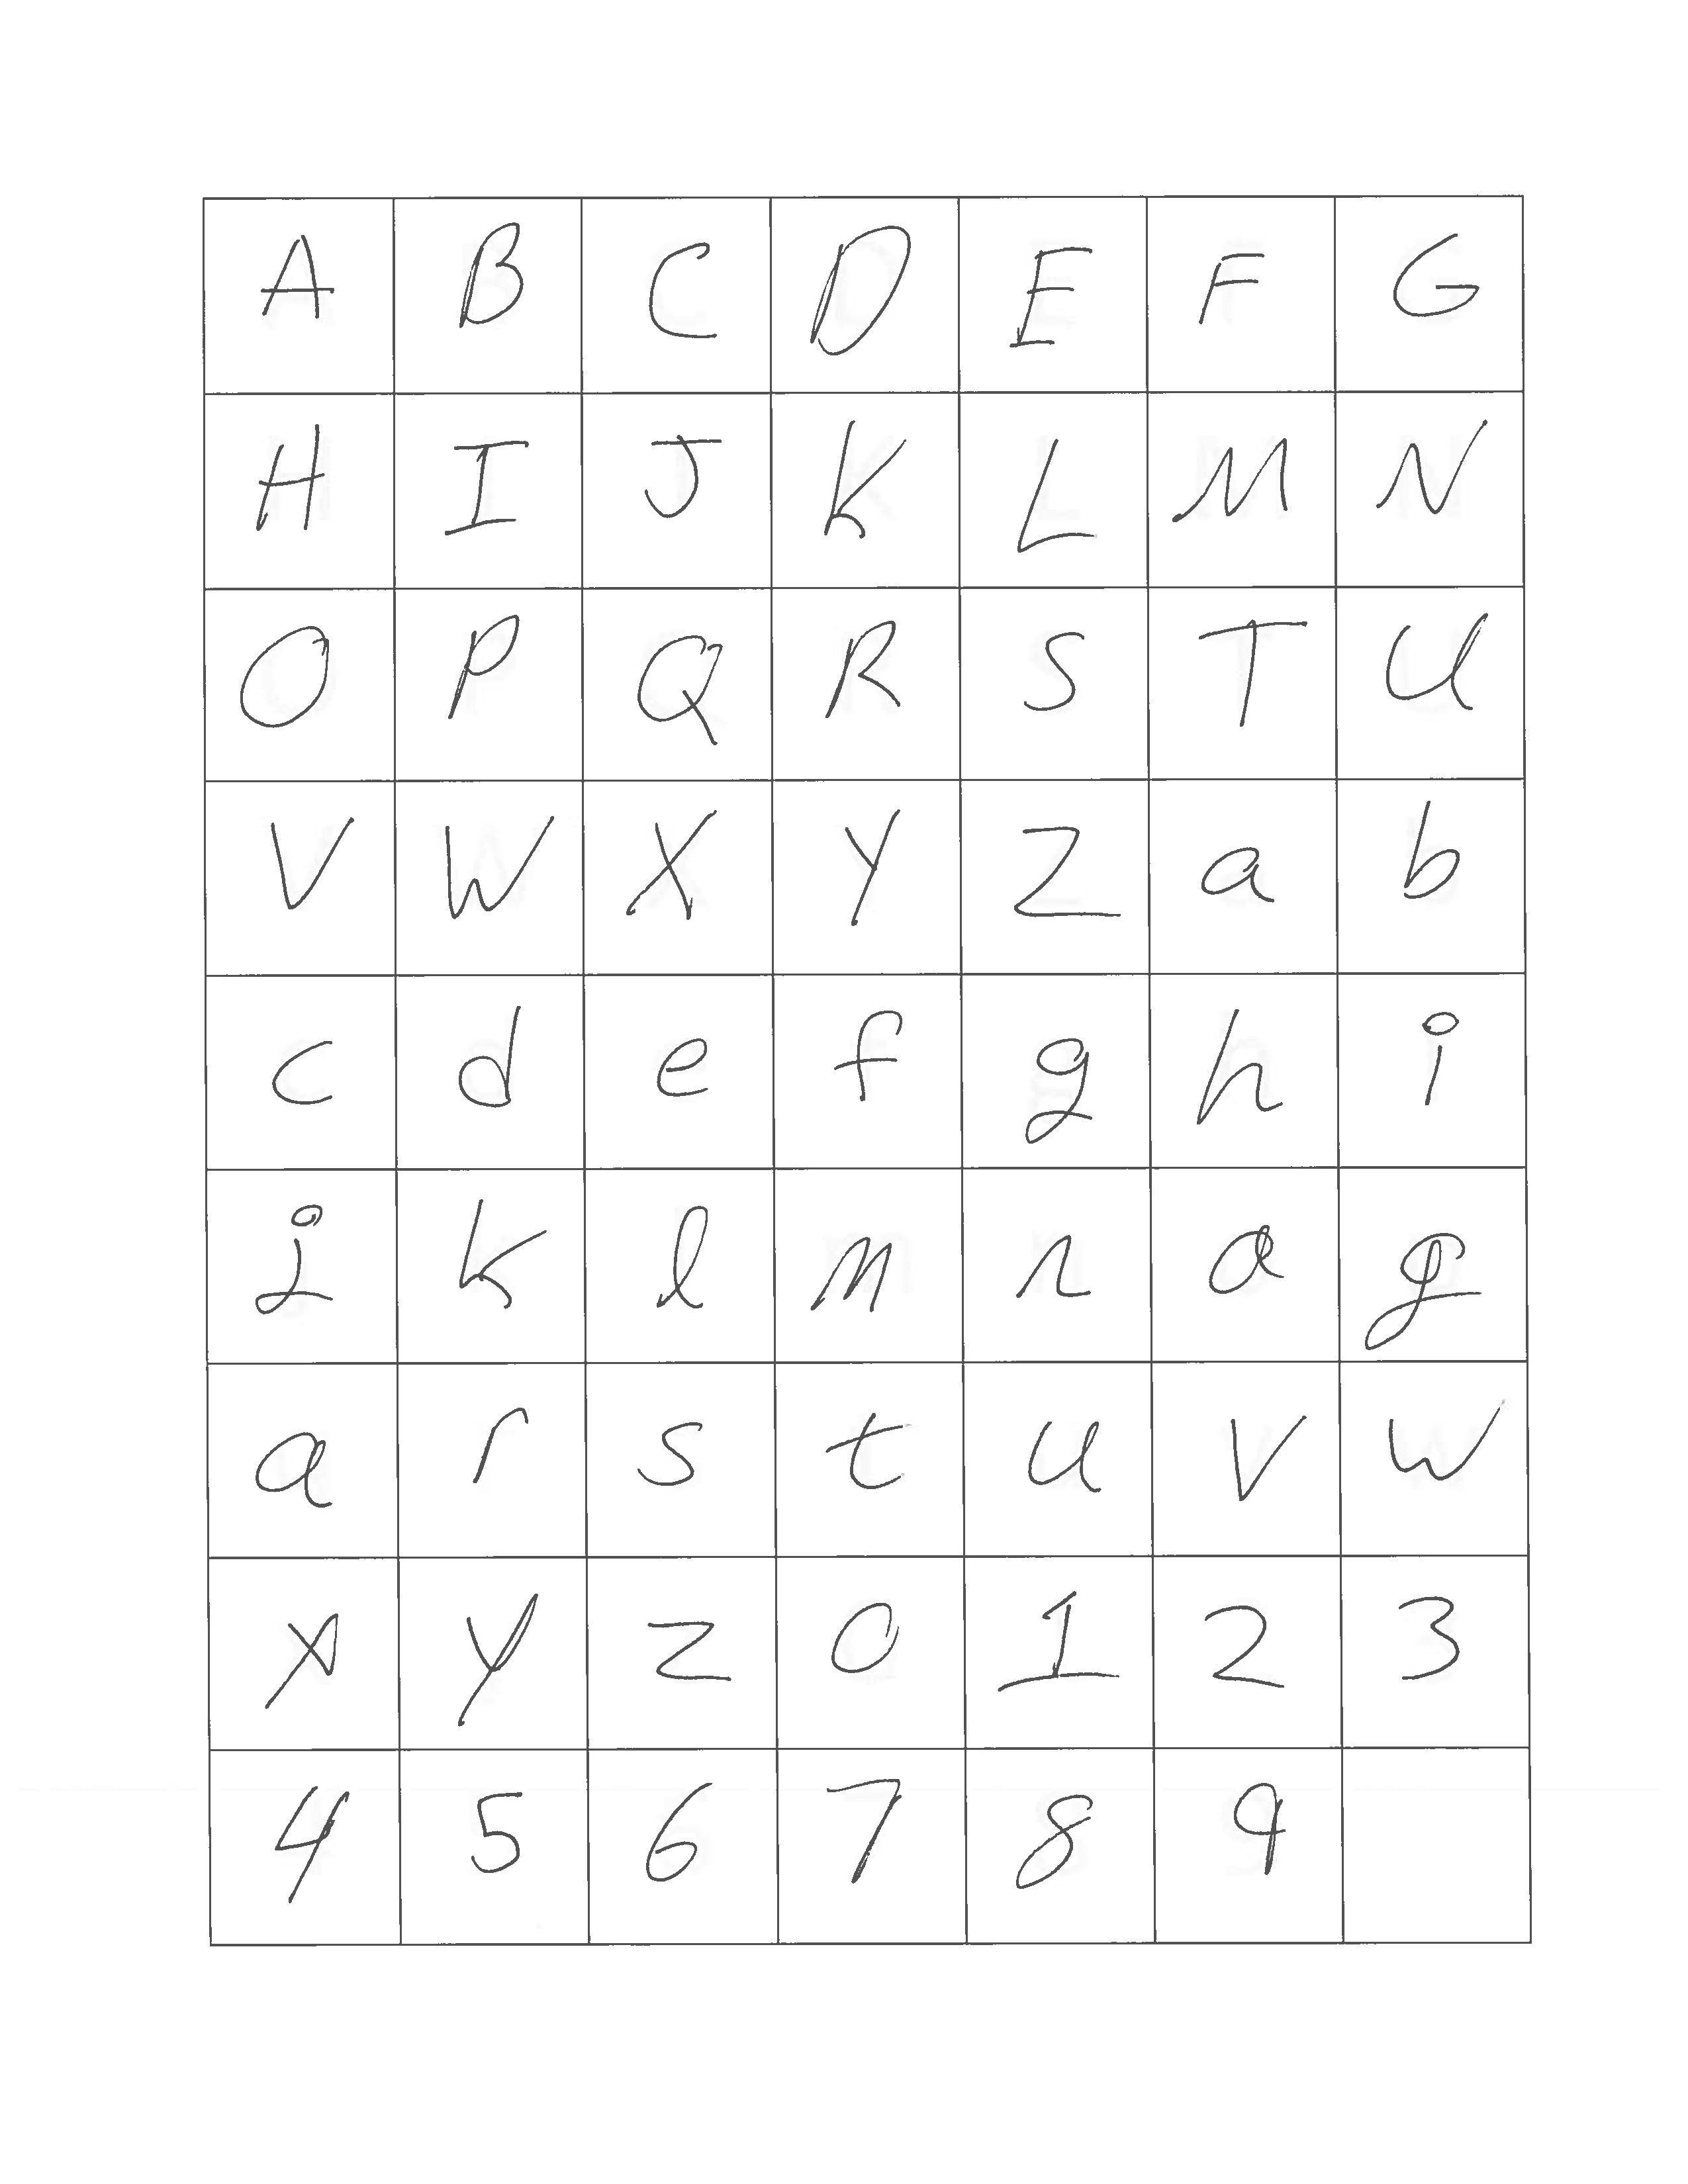 A B C D E F G
H I J K L M N
O P Q R S T U
V W X Y Z a b
c d e f g h i
j k l m n a g
a r s t u v w
x y z 0 1 2 3
4 5 6 7 8 9